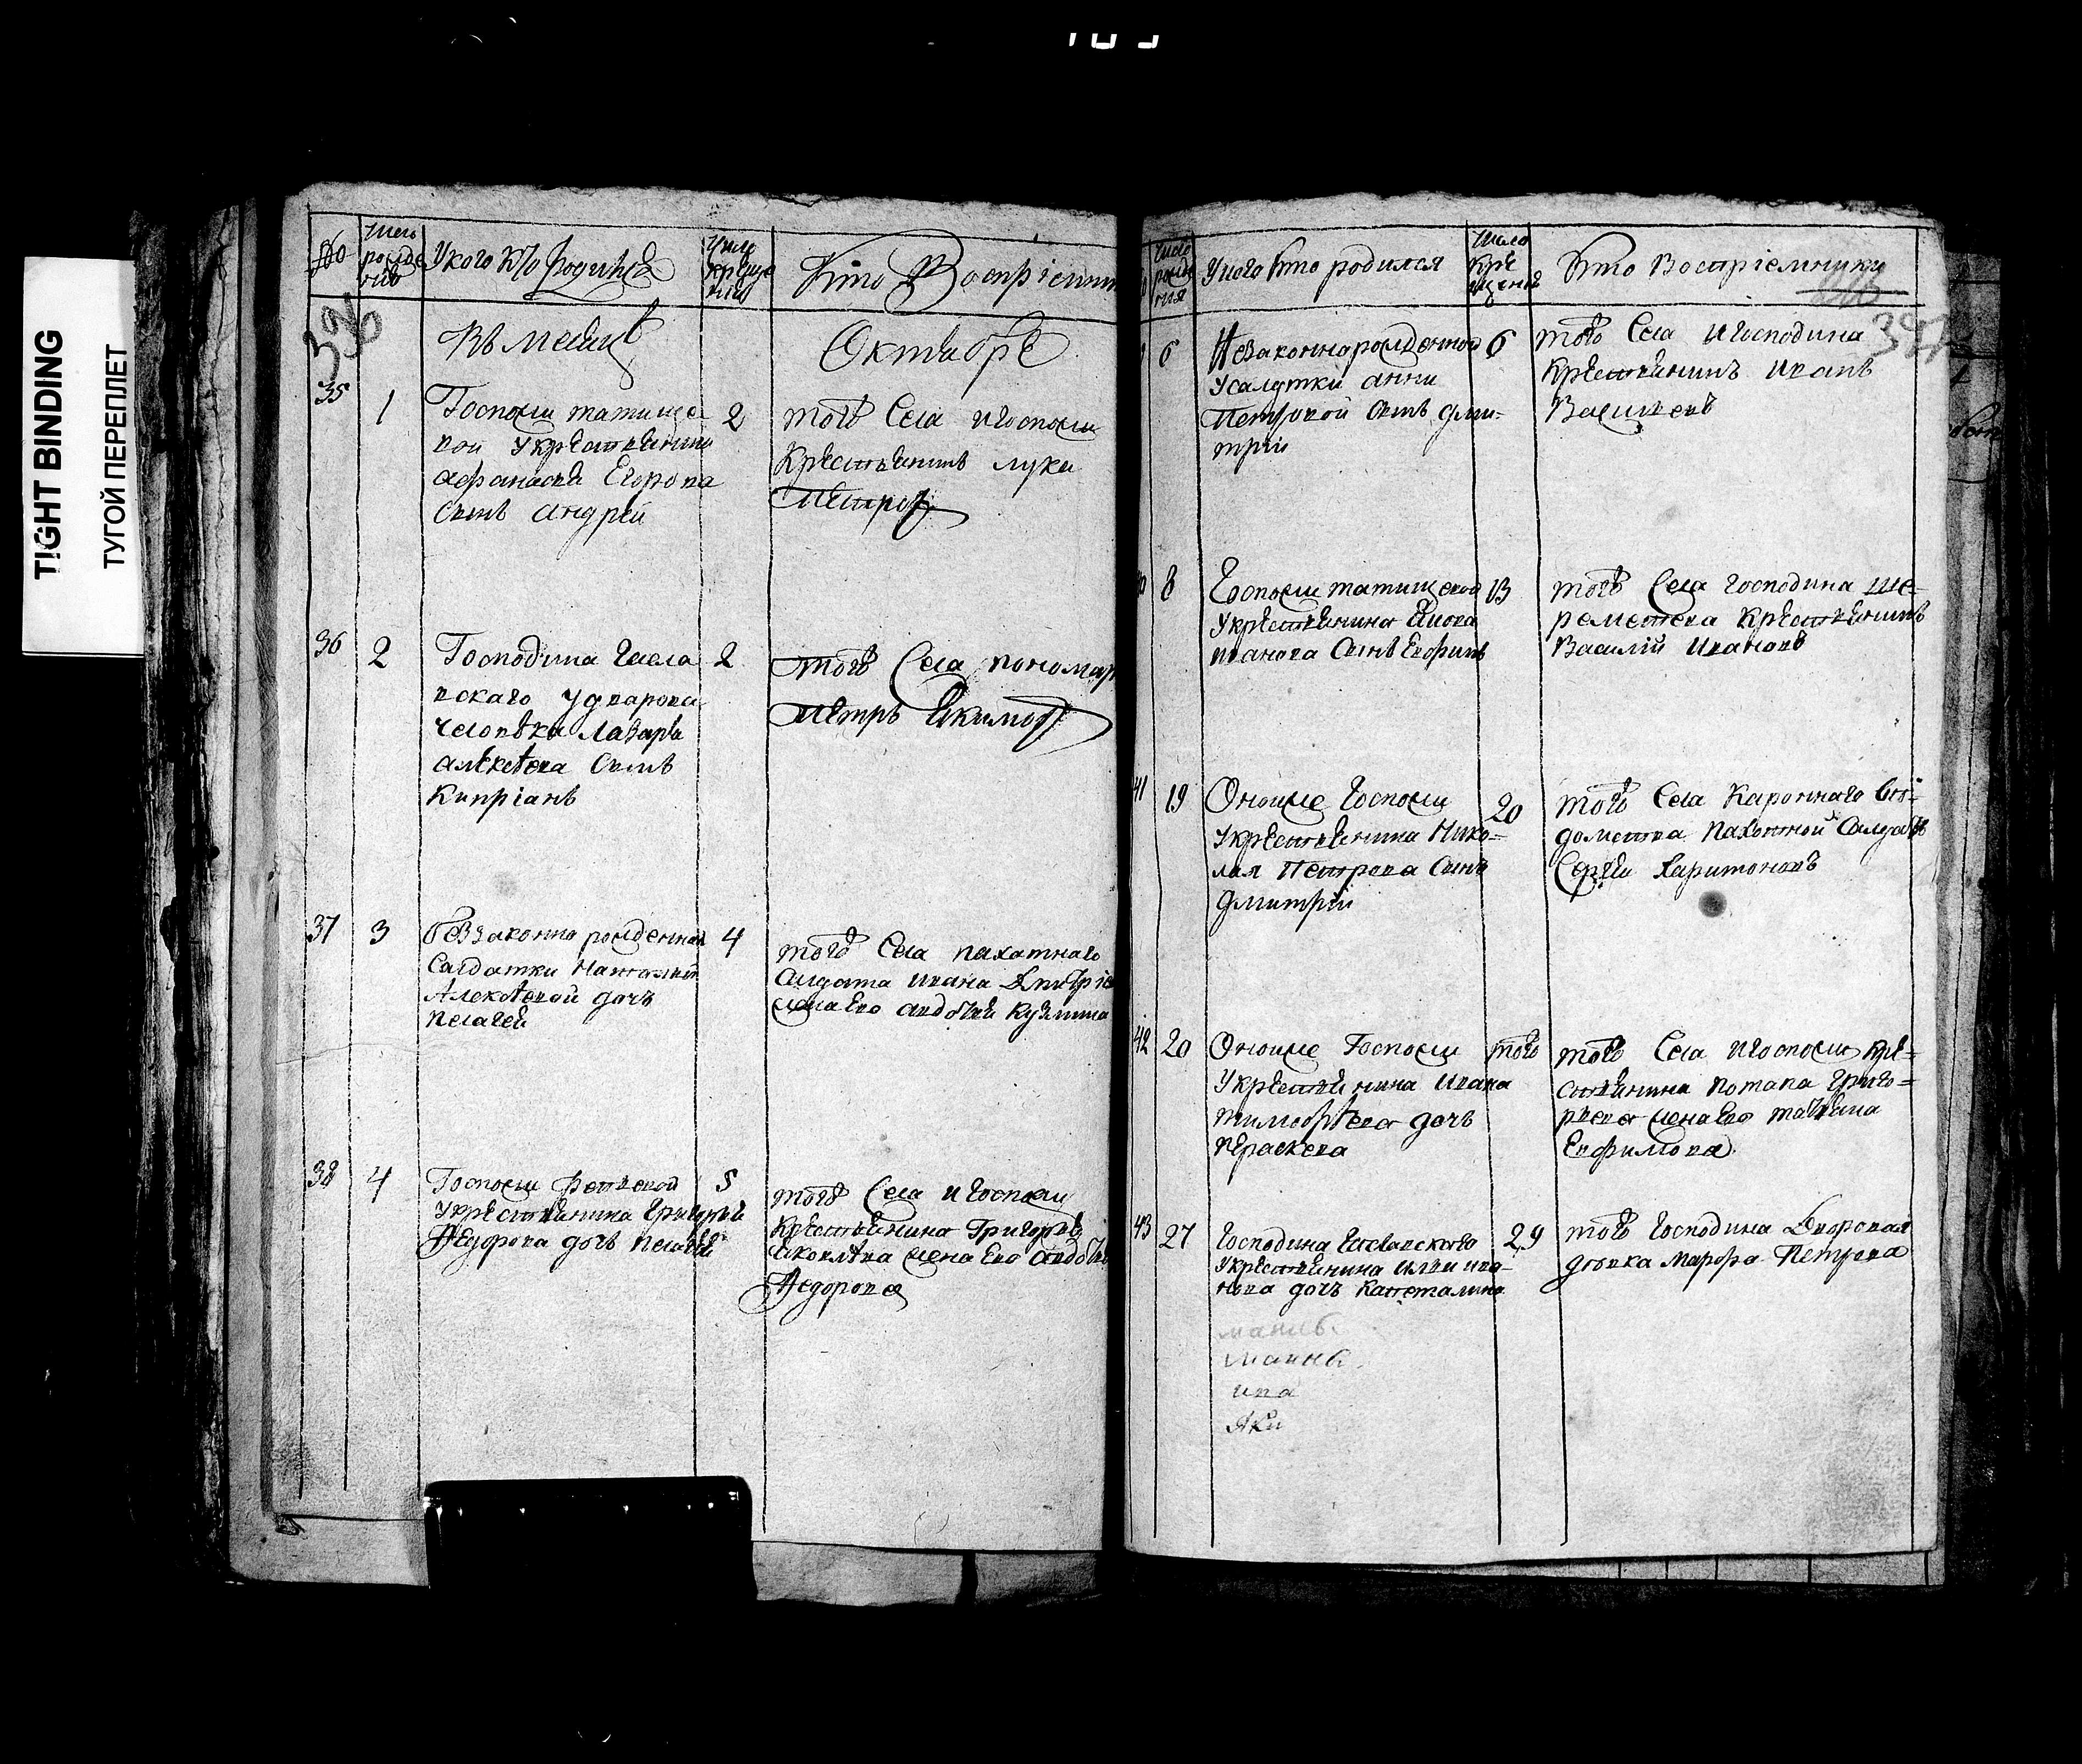 TIGHT BINDING
ТУГОЙ ПЕРЕПЛЕТ
№
Число рожде ния
У кого кто родился
Число креще ния
Кто Восприемни
396
Въ месяце
Октябре
35
1
Госпожи татище
вой у крестьянина
афанасья Егорова
сынъ андрей
2
того Села и госпожи
Крестьянинъ лука
Петров
36
2
Господина
вскаго у дварова
человека Лазаря
алексѣева сынъ
Кипріанъ
2
того Села пономар
петръ Екимов
37
3
безаконно рожденная
Салдатки Наталии
Алексѣевой дочь
Пелагея
4
того Села пахатнаго
Салдата ивана Дмитріе
жена Ево авдотья Кузмина
38
4
Госпожи
у крестьянина Григорья
Федорова дочь пелагея
5
того Села и Госпожи
Крестьянина Григорья
Яковлева жена Ево авдотья
Федорова
Число рожде ния
У кого кто родился
Число кре щения
Кто Восприемники
397
6
Незаконнорожденной
у салдатки анны
Петровой сынъ дми-
трій
6
того Села и господина
Крестьянинъ иванъ
Васильевъ
8
Госпожи татищевой
у крестьянина
иванова сынъ Ефимъ
13
того Села господина ше-
реметева крестьянинъ
Василій ивановъ
41
19
Оной же Госпожи
у крестьянина Нико-
лая Петрова сынъ
дмитрій
20
того Села Каронного
домства пахотной салдатъ
Сергей Харитоновъ
42
20
Оной же Госпожи
у крестьянина ивана
тимофѣева дочь
Пераскева
того
того Села и госпожи кре-
стьянина потапа григо-
рьева жена Ево татьяна
Ефимова
43
27
Господина
у крестьянина ильи ива-
нова дочь Капеталина
29
того господина Дворовая
девка марфа Петрова
ива
Яки